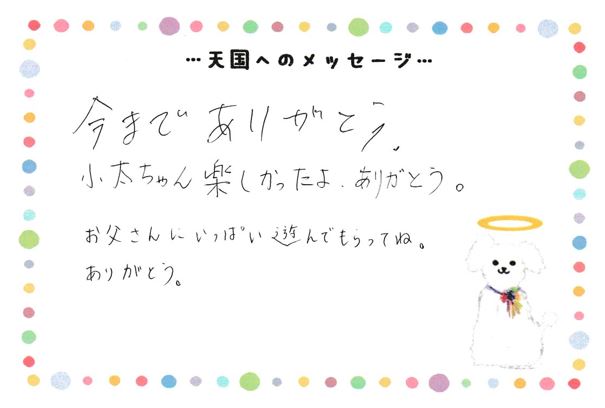 …天国へのメッセージ…
今までありがとう。
小太ちゃん楽しかったよ、ありがとう。
お父さんにいっぱい遊んでもらってね。
ありがとう。